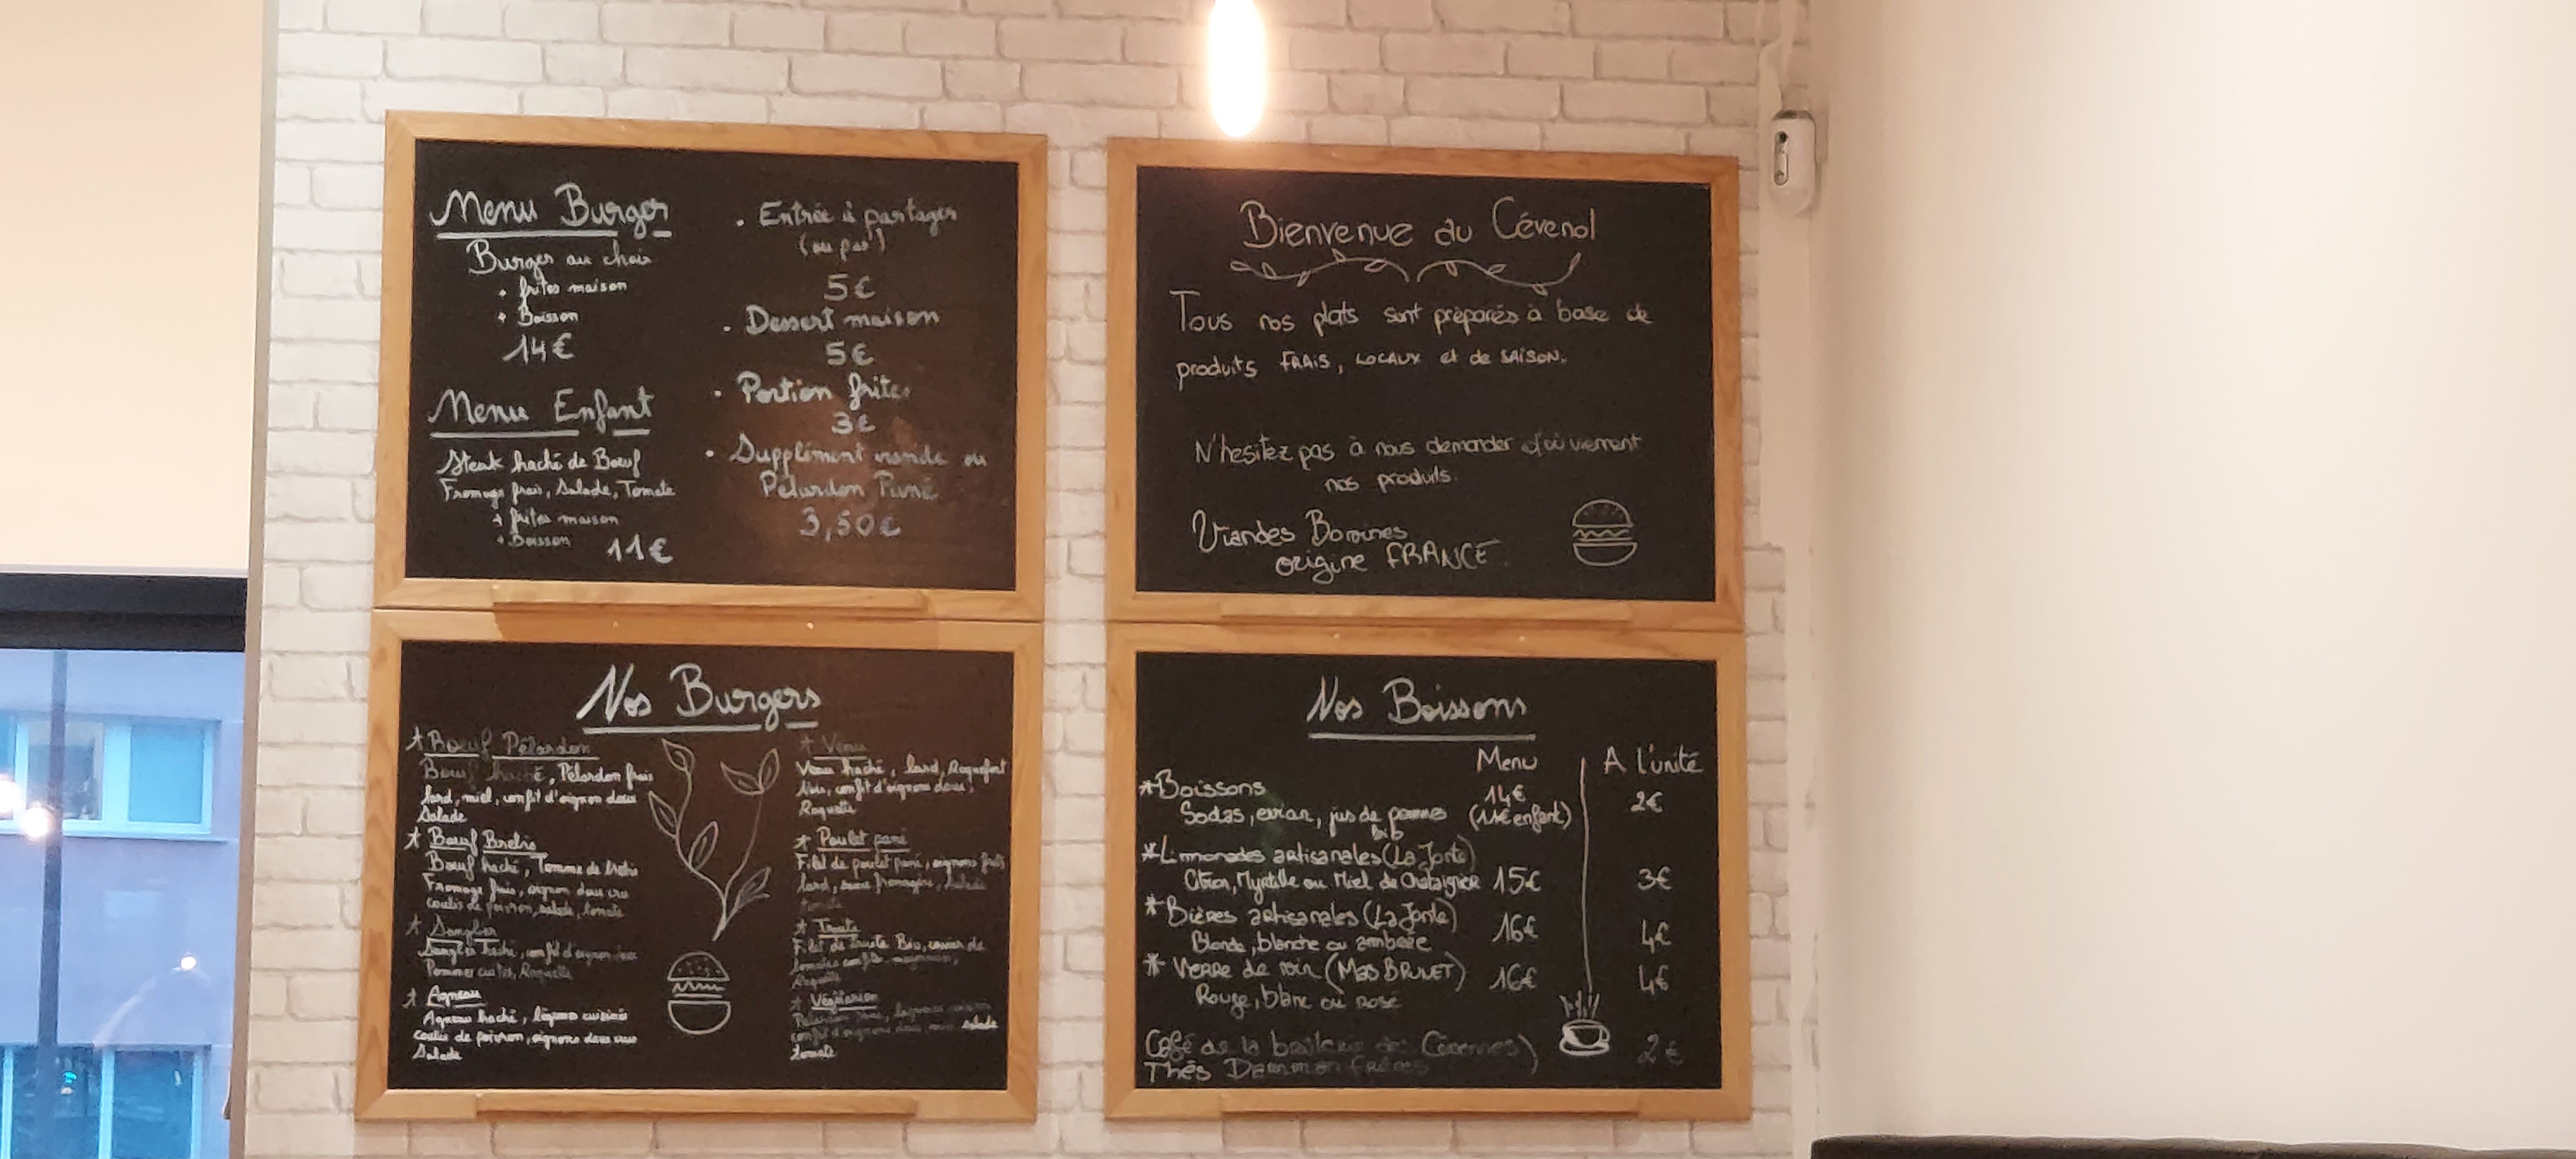 Menu Burger
Burger au choix
+ frites maison
+ Boisson
14€
Menu Enfant
Steak haché de Bœuf
Fromage frais, Salade, Tomate
+ frites maison
+ Boisson 11€
• Entrée à partager
(ou pas)
5€
• Dessert maison
5€
• Portion frites
3€
• Supplément viande ou
Pélardon Pané
3,50€
Bienvenue au Cévenol
Tous nos plats sont préparés à base de
produits FRAIS, LOCAUX et de SAISON.
N'hesitez pas à nous demander d'où viennent
nos produits.
Viandes Bovines
origine FRANCE.
Nos Burgers
* Bœuf Pélardon
Bœuf haché, Pélardon frais
lard, miel, confit d'oignon doux
Salade
* Bœuf Brebis
Bœuf haché, Tomme de brebis
Fromage frais, oignon doux cru
coulis de poivron, salade, tomate
* Sanglier
Sanglier haché, confit d'oignon doux
Pommes cuites, Roquette
* Agneau
Agneau haché, légumes cuisinés
coulis de poivron, oignons doux crus
Salade
* Veau
Veau haché, lard, Roquefort
Noix, confit d'oignons doux,
Roquette
* Poulet pané
Filet de poulet pané, oignons frits
lard, sauce fromagère, salade
tomate
* Truite
Filet de truite Bio, caviar de
tomates mayonnaise,
Roquette
* Végétarien
Pélardon pané, légumes
confit d'oignons doux, miel salade
tomate
Nos Boissons
Menu A l'unité
* Boissons 14€ 2€
Sodas, evian, jus de pommes (11€ enfant)
bib
* Limonades artisanales (La Jonte)
Citron, Myrtille ou Miel de Chataignier 15€ 3€
* Bières artisanales (La Jonte) 16€ 4€
Blonde, blanche ou ambrée
* Verre de vin (Mas BRUNET) 16€ 4€
Rouge, blanc ou rosé
Café de la brûlerie des Cévennes) 2€
Thés Damman frères